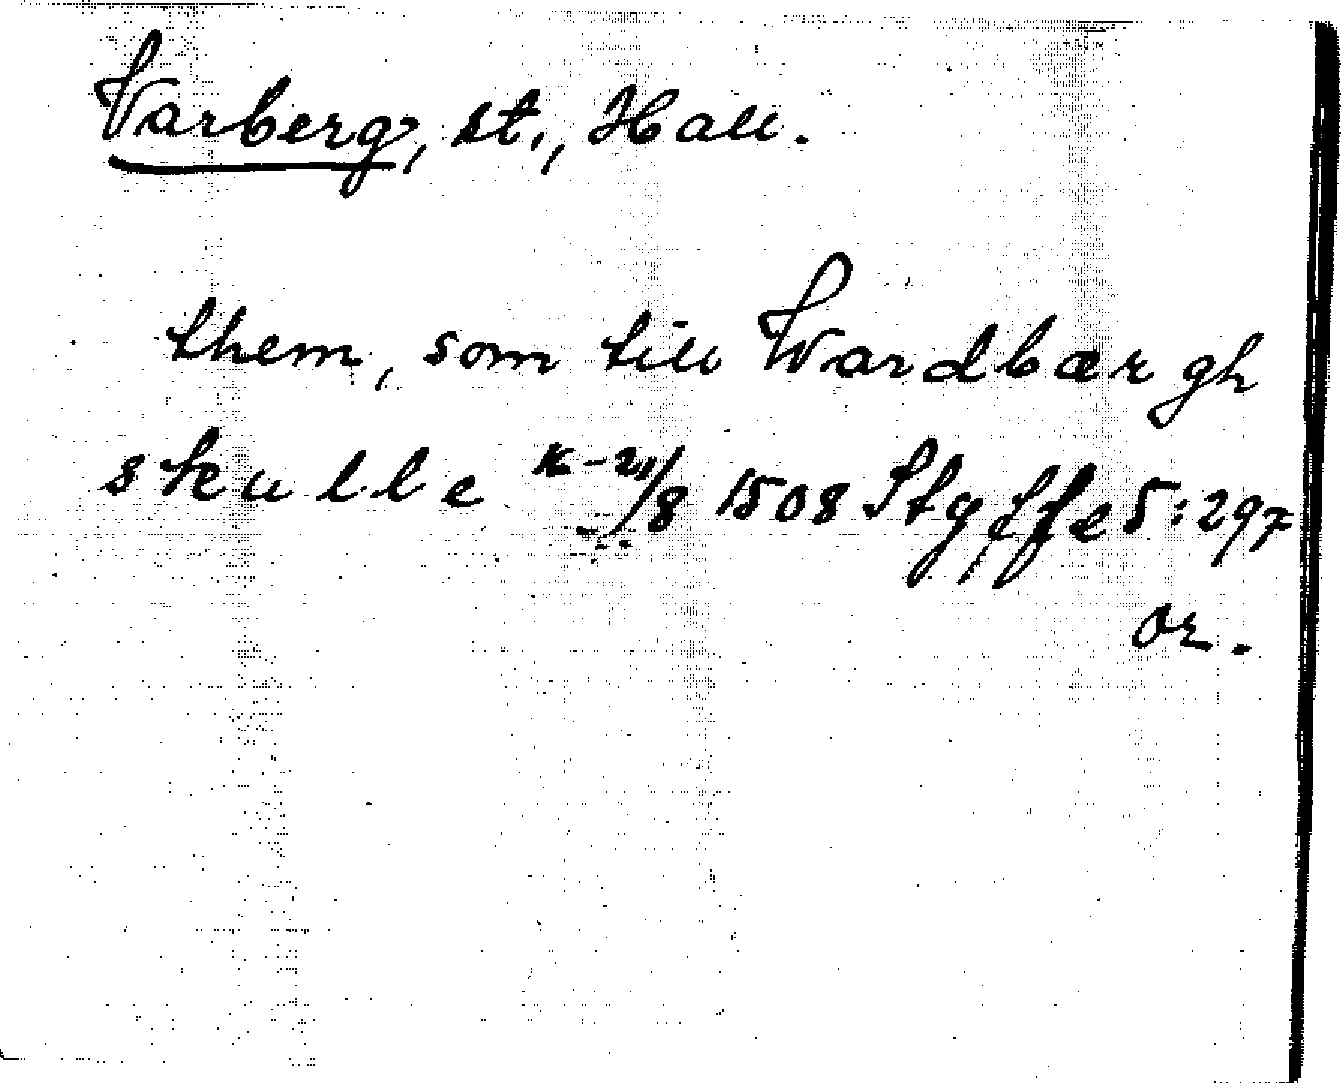 Varberg, st., Hall.
them, som till Wardbærgh
skulle 21/8 1508 Styffe 5:297
or.